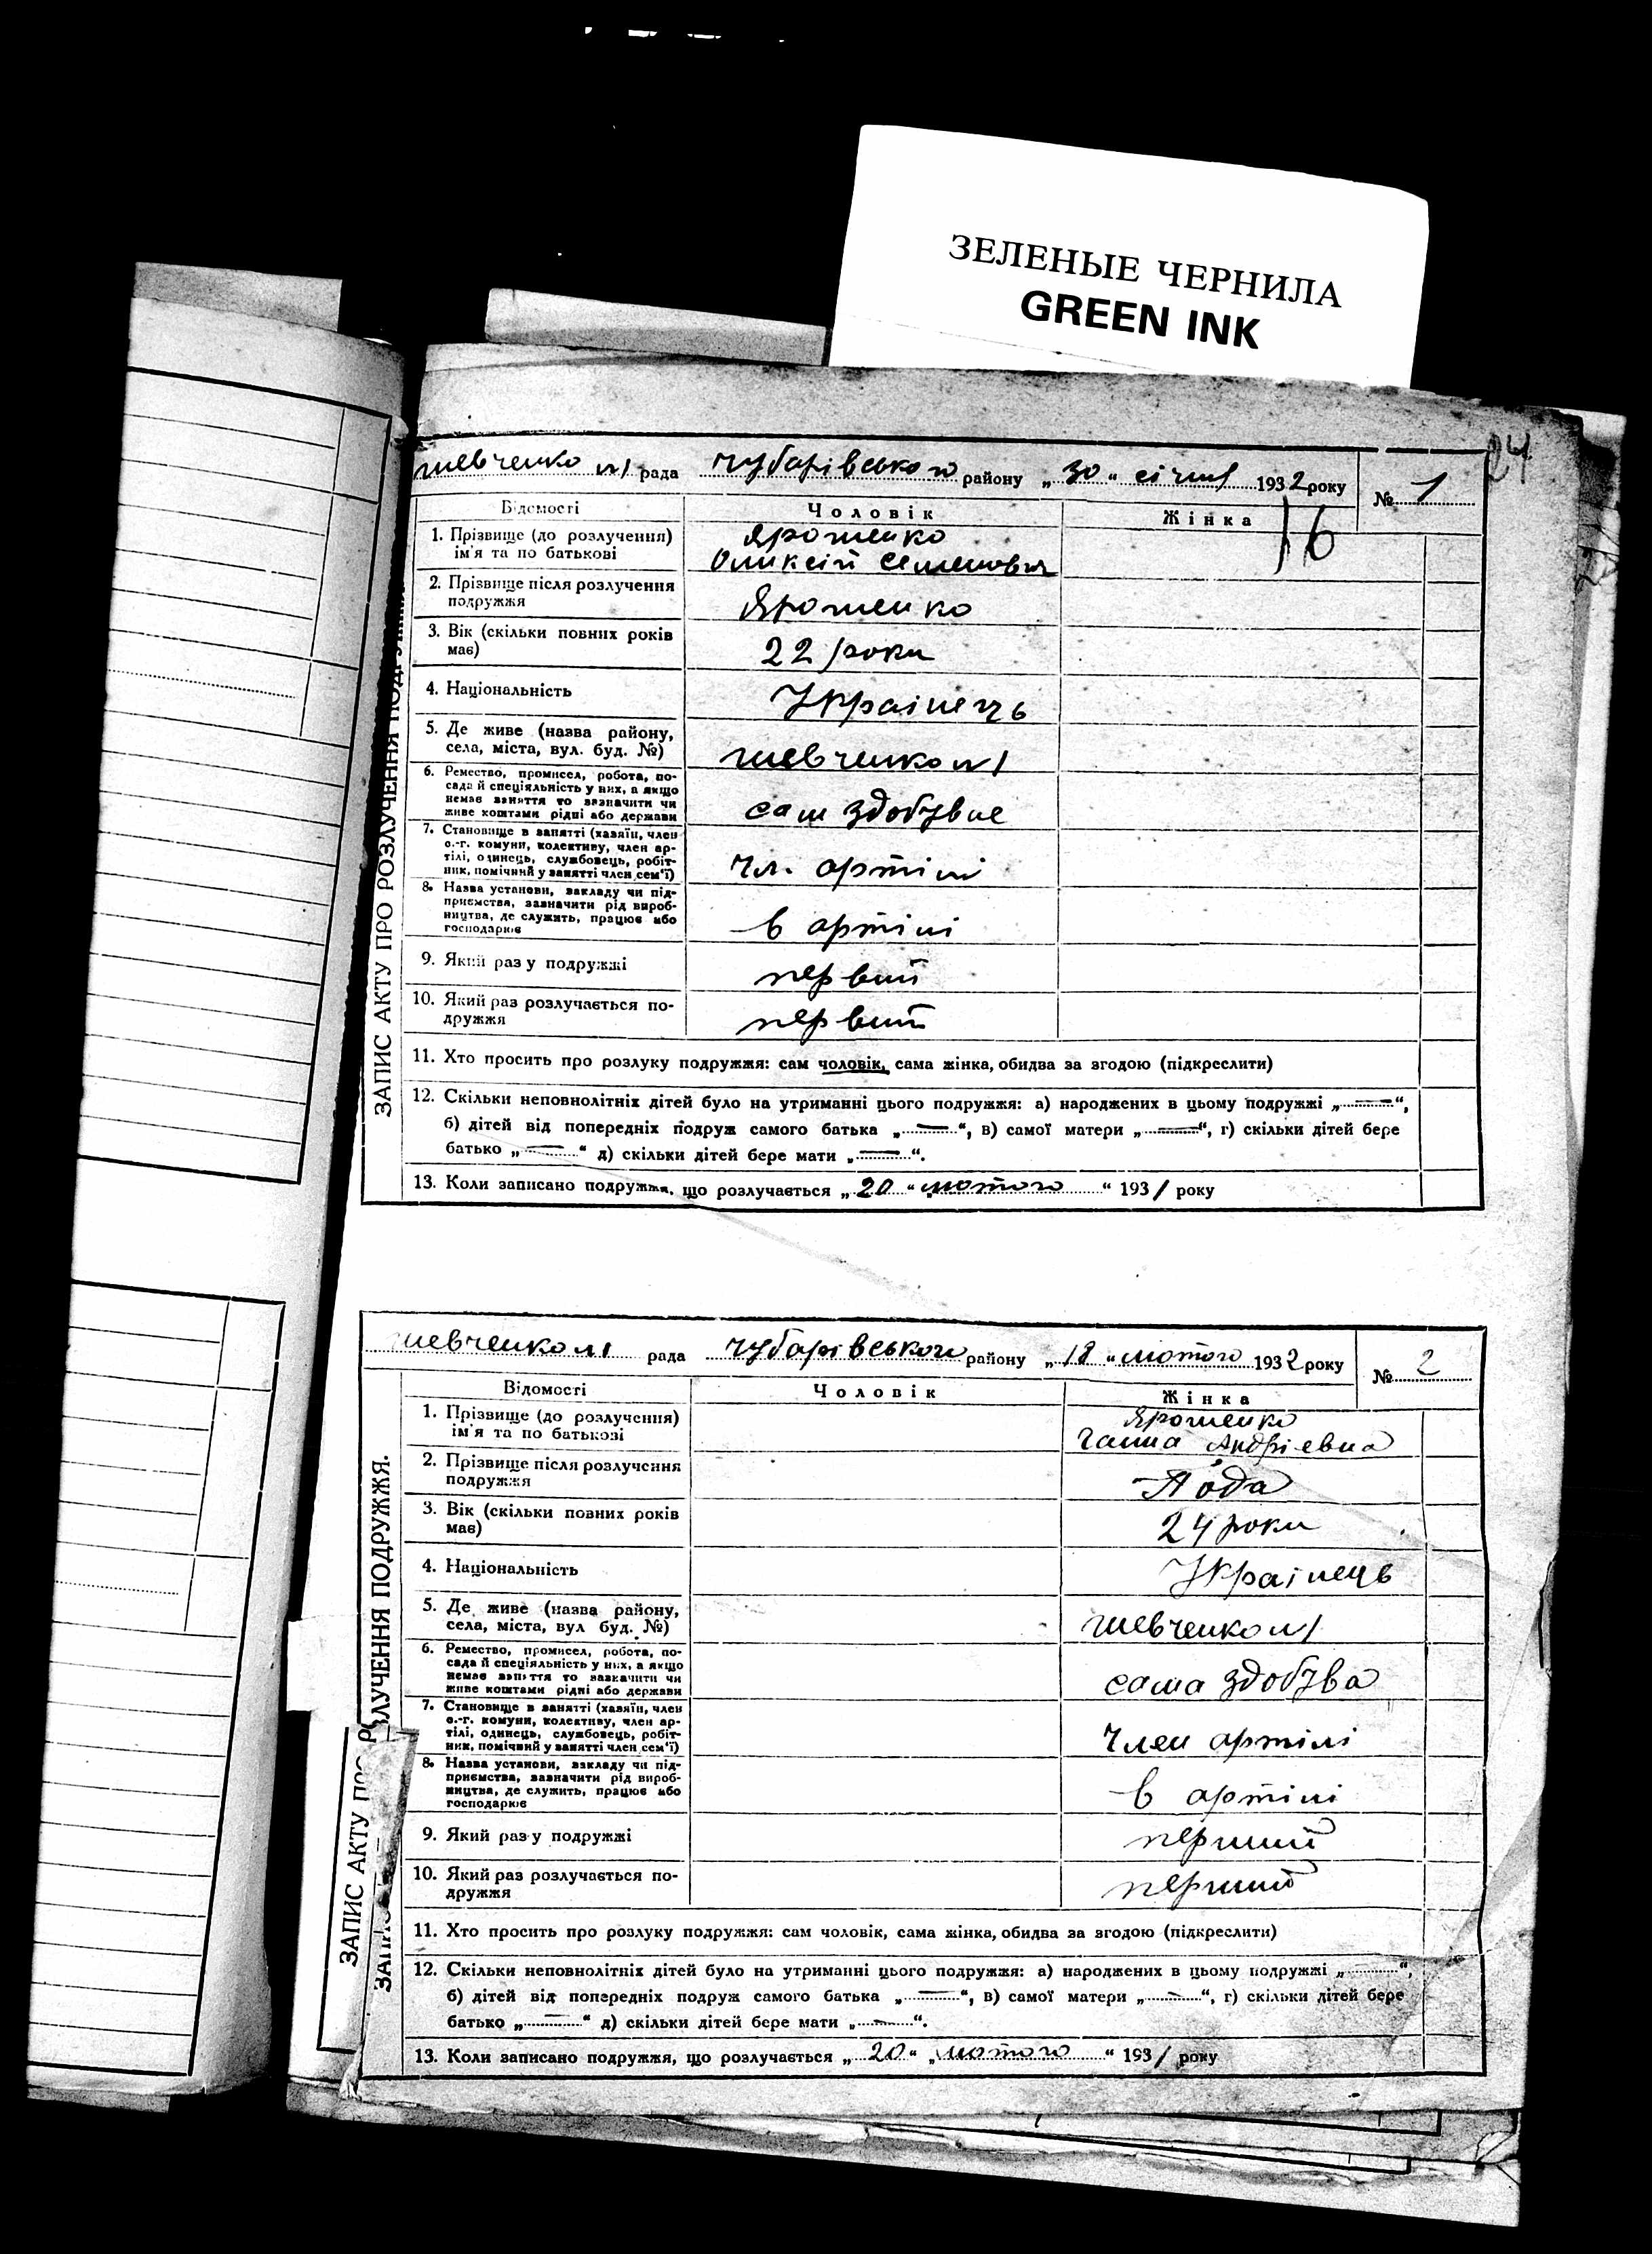 ЗЕЛЕНЫЕ ЧЕРНИЛА
GREEN INK
24
шевченко №1 рада чубарівського району „ 30 “ січня 1932 року № 1
Відомості Чоловік Жінка
16
1. Прізвище (до розлучення) ім'я та по батькові
Ярошенко
Оликсій Семенович
2. Прізвище після розлучення подружжя
Ярошенко
3. Вік (скільки повних років має)
22 роки
4. Національність
Українець
5. Де живе (назва району, села, міста, вул. буд. №)
шевченко №1
6. Ремество, промисел, робота, посада й спеціяльність у них, а якщо немає заняття то зазначити чи живе коштами рідні або держави
сам здобувне
7. Становище в занятті (хазяїн, член с.-г. комуни, колективу, член артілі, одинець, службовець, робітник, помічний у занятті член сем'ї)
чл. артілі
8. Назва установи, закладу чи підприємства, зазначити рід виробництва, де служить, працює або господарює
в артілі
9. Який раз у подружжі
первий
10. Який раз розлучається подружжя
первий
11. Хто просить про розлуку подружжя: сам чоловік, сама жінка, обидва за згодою (підкреслити)
12. Скільки неповнолітніх дітей було на утриманні цього подружжя: а) народжених в цьому подружжі „ — “,
б) дітей від попередніх подруж самого батька „ — “, в) самої матери „ — “, г) скільки дітей бере
батько „ — “ д) скільки дітей бере мати „ — “.
13. Коли записано подружжя, що розлучається „ 20 “ лютого “ 1931 року
ЗАПИС АКТУ ПРО РОЗЛУЧЕННЯ
шевченко №1 рада чубарівського району „ 18 “ лютого 1932 року № 2
Відомості Чоловік Жінка
1. Прізвище (до розлучення) ім'я та по батькові
Ярошенко
Ганна Андріевна
2. Прізвище після розлучення подружжя
3. Вік (скільки повних років має)
24 роки
4. Національність
Українець
5. Де живе (назва району, села, міста, вул буд. №)
шевченко №1
6. Ремество, промисел, робота, посада й спеціяльність у них, а якщо немає заняття то зазначити чи живе коштами рідні або держави
сама здобува
7. Становище в занятті (хазяїн, член с.-г. комуни, колективу, член артілі, одинець, службовець, робітник, помічний у занятті член сем'ї)
член артілі
8. Назва установи, закладу чи підприємства, зазначити рід виробництва, де служить, працює або господарює
в артілі
9. Який раз у подружжі
перший
10. Який раз розлучається подружжя
перший
11. Хто просить про розлуку подружжя: сам чоловік, сама жінка, обидва за згодою (підкреслити)
12. Скільки неповнолітніх дітей було на утриманні цього подружжя: а) народжених в цьому подружжі „ — “,
б) дітей від попередніх подруж самого батька „ — “, в) самої матери „ — “, г) скільки дітей бере
батько „ — “ д) скільки дітей бере мати „ — “.
13. Коли записано подружжя, що розлучається „ 20 “ „ лютого “ 1931 року
ЛУЧЕННЯ ПОДРУЖЖЯ.
ЗАПИС АКТУ ПРО